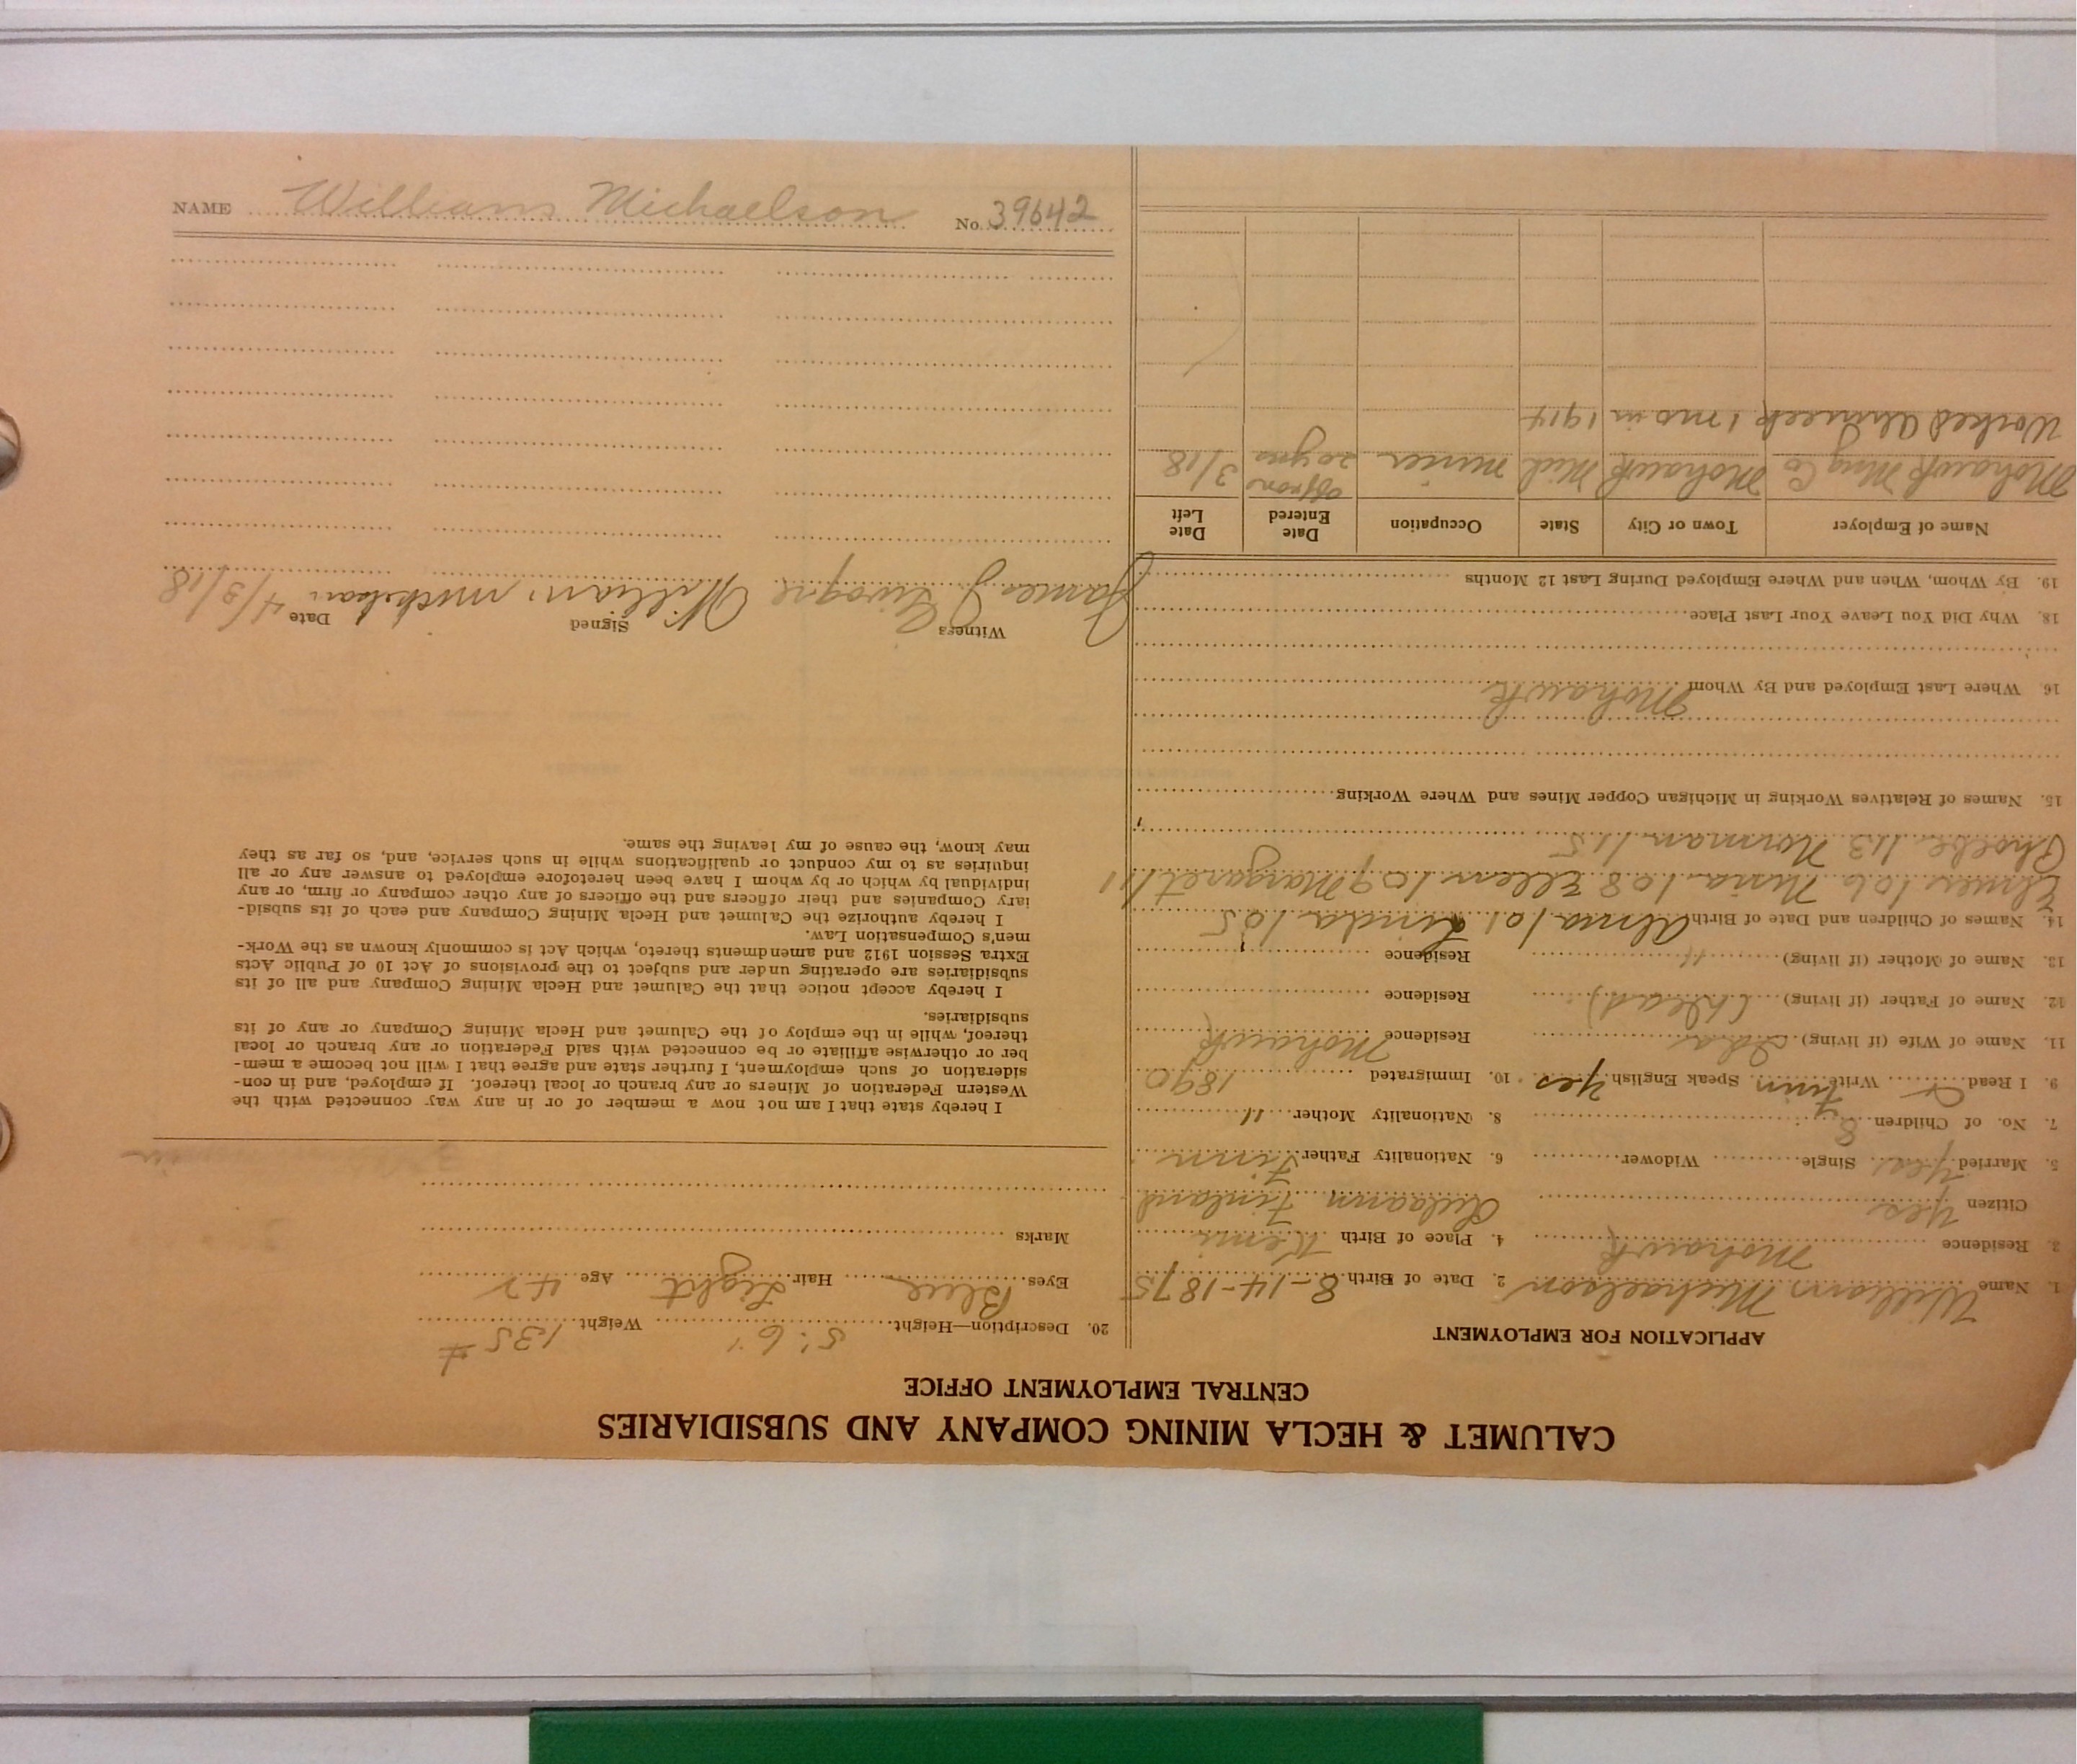 CALUMET & HECLA MINING COMPANY AND SUBSIDIARIES
CENTRAL EMPLOYMENT OFFICE
APPLICATION FOR EMPLOYMENT
1. Name William Michaelson 2. Date of Birth 8-14-1875
3. Residence Mohawk 4. Place of Birth Kemi
Citizen Yes Finland
5. Married Yes Single Widower 6. Nationality Father Finn
7. No. of Children 8 8. Nationality Mother "
9. I Read Write Finn Speak English Yes 10. Immigrated 1890
11. Name of Wife (if living) Ida Residence Mohawk
12. Name of Father (if living) (Dead) Residence
13. Name of Mother (if living) " Residence
14. Names of Children and Date of Birth Alma 1901 Linda 1905
Elmer 1906 Mina 1908 Ellen 1909 Margaret 1911
Phoebe 1913 Norman 1915
15. Names of Relatives Working in Michigan Copper Mines and Where Working
16 Where Last Employed and By Whom Mohawk
18. Why Did You Leave Your Last Place
19. By Whom, When and Where Employed During Last 12 Months
Name of Employer Town or City State Occupation Date Entered Date Left
Mohawk Mng Co Mohawk Mich miner 20 yrs 3/18
Worked Ahmeek 1 mo in 1914
20. Description—Height 5' 6" Weight 135 #
Eyes Blue Hair Light Age 42
Marks
I hereby state that I am not now a member of or in any way connected with the
Western Federation of Miners or any branch or local thereof. If employed, and in con-
sideration of such employment, I further state and agree that I will not become a mem-
ber or otherwise affiliate or be connected with said Federation or any branch or local
thereof, while in the employ of the Calumet and Hecla Mining Company or any of its
subsidiaries.
I hereby accept notice that the Calumet and Hecla Mining Company and all of its
subsidiaries are operating under and subject to the provisions of Act 10 of Public Acts
Extra Session 1912 and amendments thereto, which Act is commonly known as the Work-
men's Compensation Law.
I hereby authorize the Calumet and Hecla Mining Company and each of its subsid-
iary Companies and their officers and the officers of any other company or firm, or any
individual by which or by whom I have been heretofore employed to answer any or all
inquiries as to my conduct or qualifications while in such service, and, so far as they
may know, the cause of my leaving the same.
Witness Signed Date 4/3/18
James J William Michelson
NAME William Michaelson No. 39642